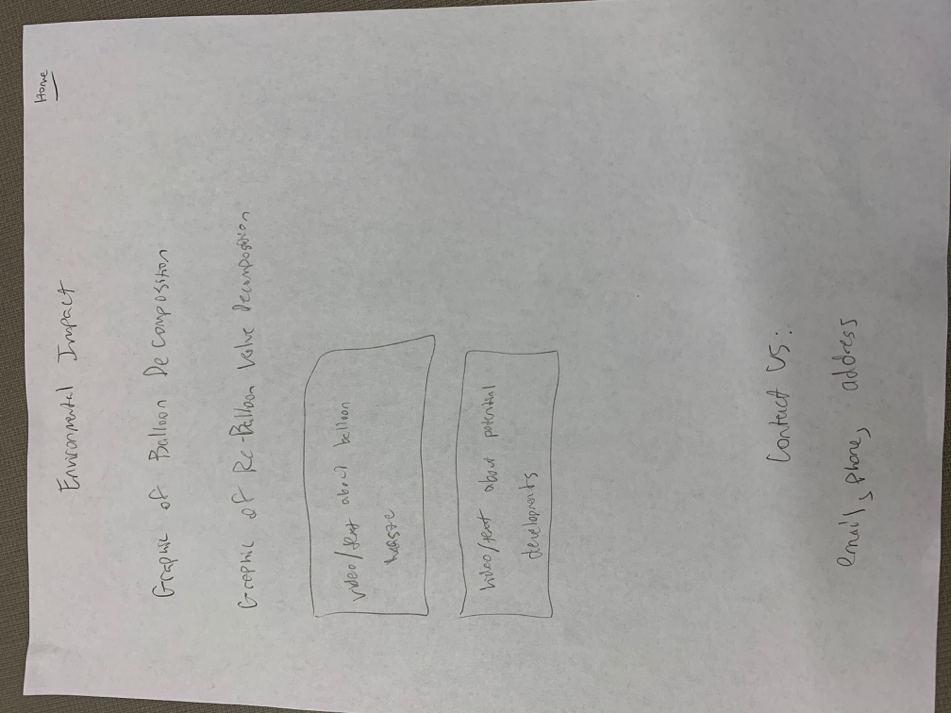 Home
Environmental Impact
Graphic of Balloon Decomposition
Graphic of Re-Balloon Valve Decomposition
video/text about balloon
waste
video/text about potential
developments
Contact US:
email, phone, address